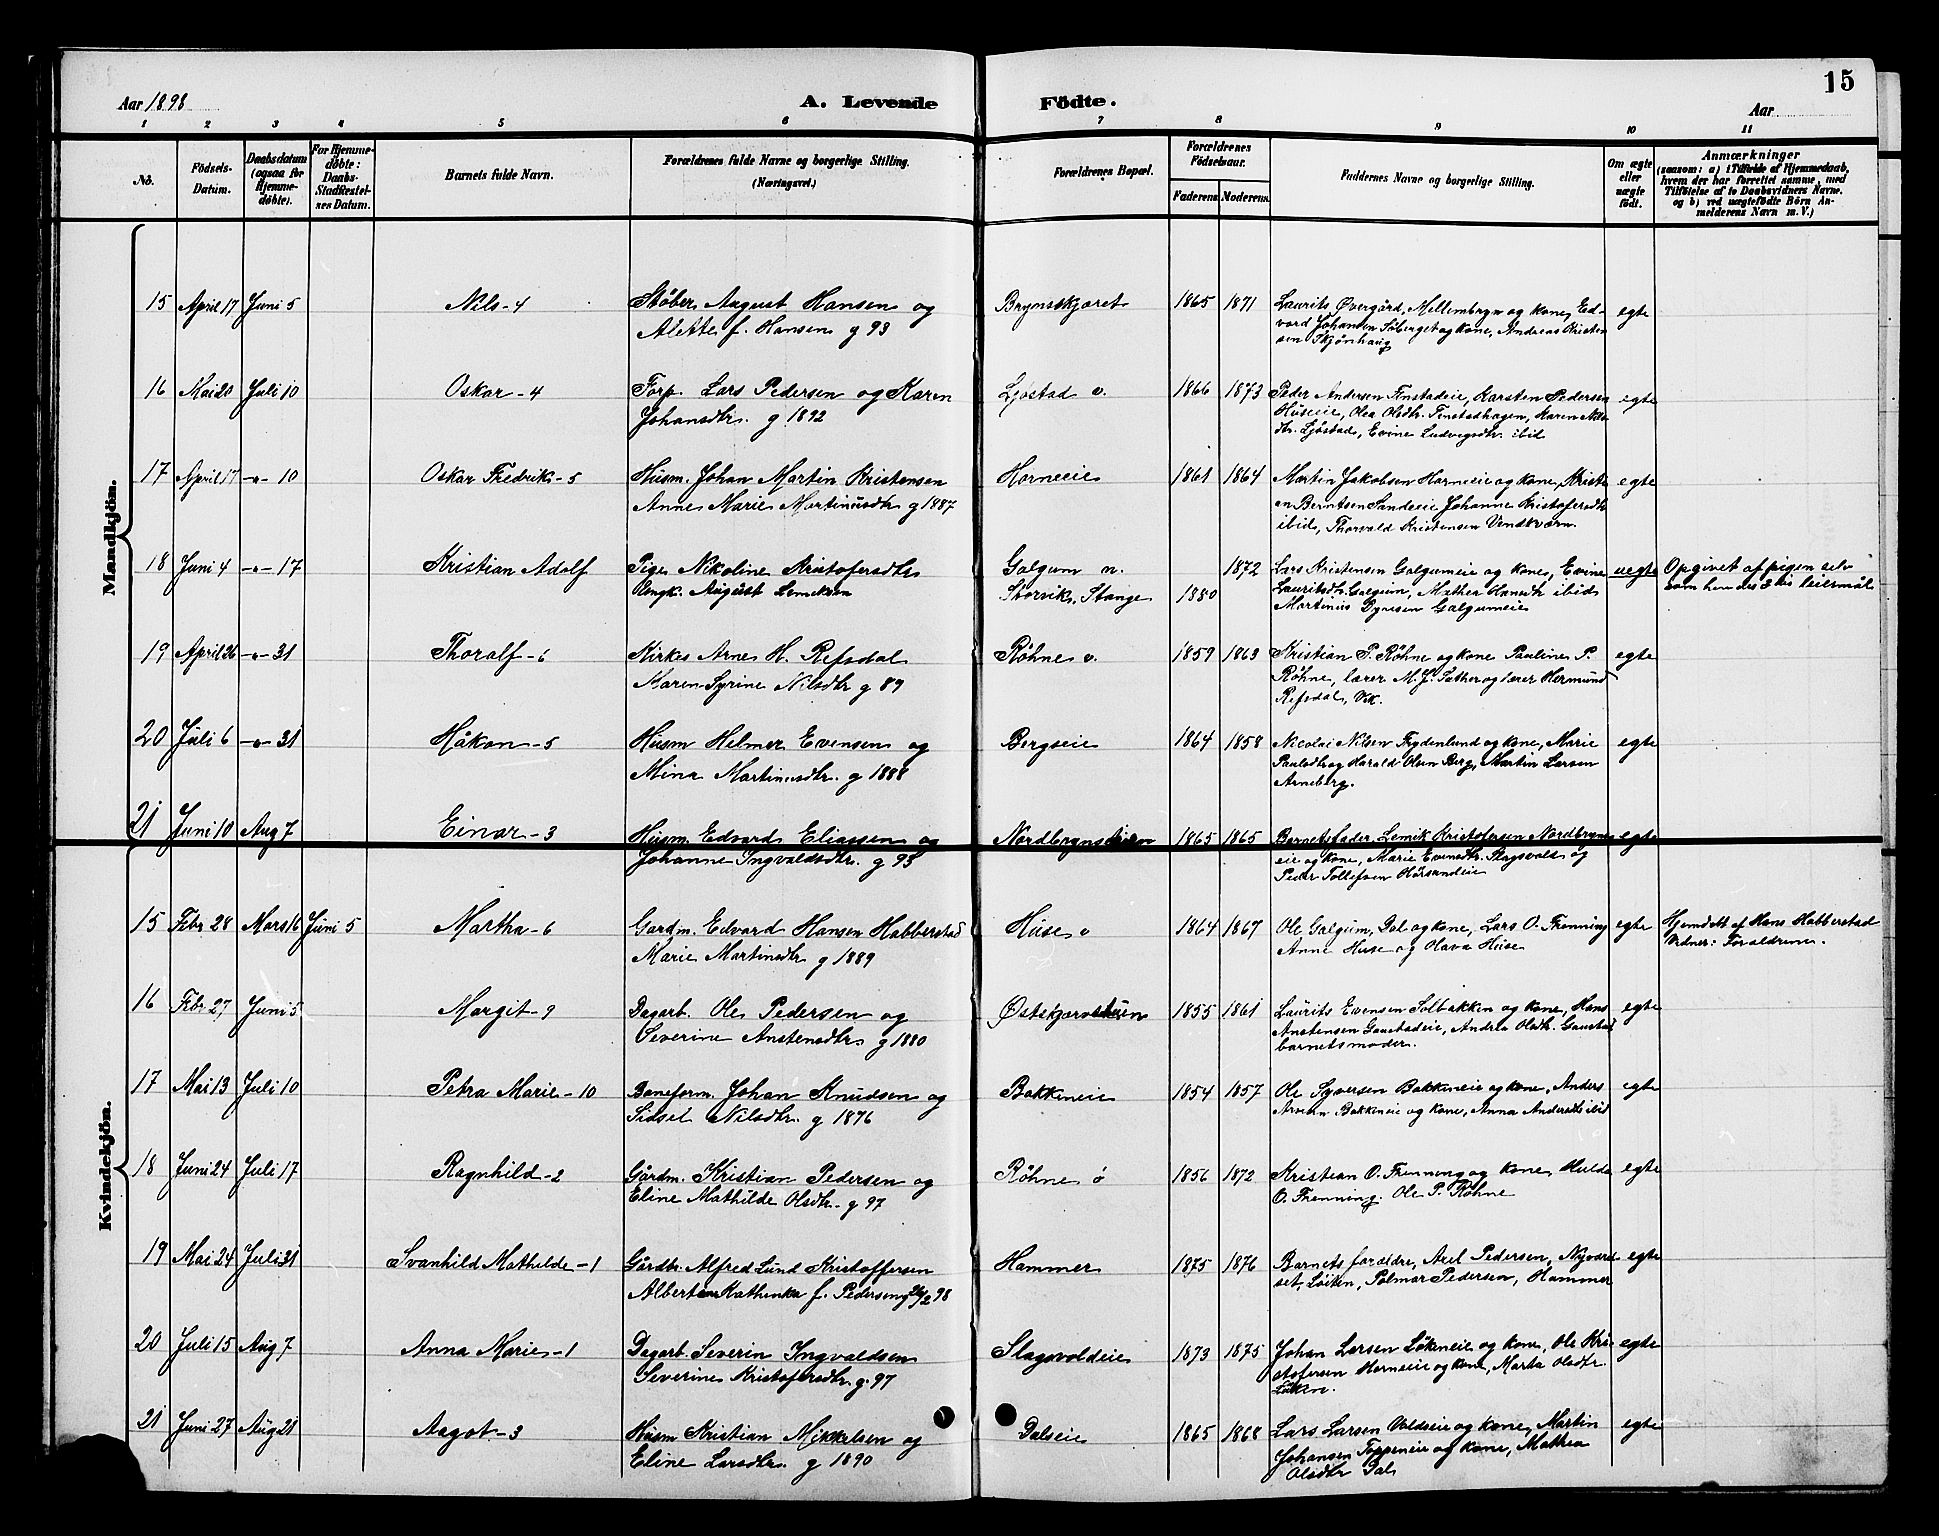 15
Aar 1898
A. Levende Födte.
Aar
1 2 3 4 5 6 7 8 9 10 11
No.
Födsels-Datum.
Daabsdatum (ogsaa for Hjemmedöbte).
For Hjemmedöbte: Daabs-Stadfestelses Datum.
Barnets fulde Navn.
Forældrenes fulde Navne og borgerlige Stilling. (Næringsvei.)
Forældrenes Bopæl.
Forældrenes Födselsaar.
Faderens Moderens
Faddernes Navne og borgerlige Stilling.
Om ægte eller uægte födt.
Anmærkninger
(saasom: a) i Tilfælde af Hjemmedaab, hvem der har forrettet samme, med Tilföielse af to Daabsvidners Navne, og b) ved uægtefödte Börn Anmelderens Navn m. V.)
Mandkjön.
15 April 17 Juni 5 Nils-4 Støber August Hansen og Brynsskjæret 1865 1871 Laurits Övergård, Mellembryn og kone, Ed- egte
Alette f. Hansen g 93 vard Johansen Söberget og kone, Andreas Kristen
sen Skjønhaug
16 Mai 20 Juli 10 Oskar-4 Forp. Lars Pedersen og Karen Ljøstad v. 1866 1873 Peder Andersen Finstadeie, Karsten Pedersen egte
Johansdtr. g 1892 Huseeie, Olea Olsdtr. Finstadhagen, Karen Nils
dtr. Ljøstad, Evine Ludvigsdtr. ibid
17 April 17 -"- 10 Oskar Fredrik-5 Husm. Johan Martin Kristensen Horneeie 1861 1864 Martin Jakobsen Horneeie og kone, Krist- egte
Anne Marie Martinusdtr g 1887 en Berntsen Sandeeie Johanne Kristofersdtr
ibid, Thorvald Kristensen Vendkværn.
18 Juni 4 -"- 17 Kristian Adolf Pige Nikoline Kristofersdtr Galgum n. 1872 Lars Kristensen Galgumeie og kone, Evine uegte Opgivet af pigen selv
Ungk. August Lemeksen Storvik, Stange 1880 Lauritsdtr. Galgum, Mathea Hansdtr ibid som hendes 3die leiermål
Martinius Dynesen Galgumeie
19 April 26 -"- 31 Thoralf-6 Kirkes Arne H. Refsdal Røhne v. 1859 1863 Kristian P. Røhne og kone Pauline P. egte
Karen Syrine Nilsdtr g 89 Røhne, lærer M. J. Sæther og lærer Hermund
Refsdal, Vik.
20 Juli 6 -"- 31 Håkon-5 Husm Helmer Evensen og Bergseie 1864 1858 Nicolai Nilsen Frydenlund og kone, Marie egte
Mina Martinusdtr. g 1888 Paulsdtr og Harald Olsen Berg, Martin Larsen
Arneberg.
21 Juni 10 Aug 7 Einar-3 Husm. Edvard Eliassen og Nordbrynsteien 1865 1865 Barnets fader, Lemik Kristofersen Nordbryns egte
Johanne Ingvaldsdtr. g 93 eie og kone, Marie Evensdtr. Slagsvold og
Peder Tollefsen Horsandeie
Kvindekjön.
15 Febr 28 Mars 16 Juni 5 Martha-6 Gardm. Edvard Hansen Habberstad Huse v 1864 1867 Ole Galgum, Dal og kone, Lars O. Frenning egte Hjemdøbt af Hans Habberstad
Marie Martinsdtr g 1889 Anne Huse og Olava Huse Vidner: Forældrene.
16 Febr 27 Juni 5 Margit-9 Dagarb. Ole Pedersen og Østskjærstuen 1855 1861 Laurits Evensen Solbakken og kone, Hans egte
Severine Anstensdtr. g 1880 Anstensen Gaustadeie, Andrea Olsdtr. Gaustad
barnets moder.
17 Mai 13 Juli 10 Petra Marie-10 Baneform. Johan Knudsen og Bakkeneie 1854 1857 Ole Syversen Bakkeneie og kone, Anders egte
Sidsel Nilsdtr. g 1876 Arnesen Bakkeneie og kone, Anna Andersdtr ibid
18 Juni 24 Juli 17 Ragnhild-2 Gårdm. Kristian Pedersen og Røhne ø 1856 1872 Kristian O. Frenning og kone Hulda egte
Eline Mathilde Olsdtr. g 97 O. Frenning. Ole P. Røhne
19 Mai 24 Juli 31 Svanhild Mathilde-1 Gårdbr. Alfred Lund Kristoffersen Hammer 1875 1876 Barnets forældre, Axel Pedersen, Nyvard- egte
Albertine Kathinka f. Pedersen g 26/2 98 set, Løiten, Palmar Pedersen, Hammer
20 Juli 15 Aug 7 Anna Marie-1 Dagarb. Severin Ingvaldsen Slagsvoldeie 1873 1875 Johan Larsen Løkeneie og kone, Ole Kri- egte
Severine Kristofersdtr. g. 97 stofersen Horneeie og kone, Marta Olsdtr.
Løken.
21 Juni 27 Aug 21 Aagot-3 Husm Kristian Mikkelsen og Dalseie 1865 1868 Lars Larsen Valdseie og kone, Martin egte
Eline Larsdtr. g 1890 Johansen Toppeneie og kone, Mathea
Olsdtr Dal